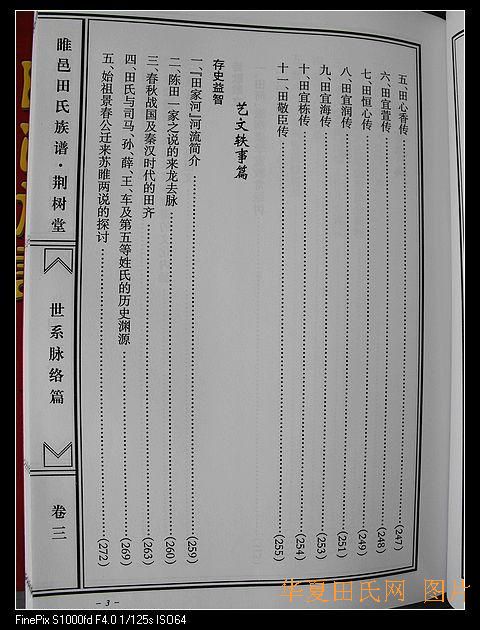 五、田心香传……(247)
六、田宜萱传……(248)
七、田恒心传……(249)
八、田宜润传……(251)
九、田宜海传……(253)
十、田宜栋传……(254)
十一、田敬臣传……(255)
艺文轶事篇
存史益智
一、『田家河』河流简介……(259)
二、陈田一家之说的来龙去脉……(260)
三、春秋战国及秦汉时代的田齐……(263)
四、田氏与司马、孙、薛、王、车及第五等姓氏的历史渊源……(269)
五、始祖景春公迁来苏睢两说的探讨……(272)
睢邑田氏族谱·荆树堂
世系脉络篇
卷三
- 3 -
华夏田氏网 图片
FinePix S1000fd F4.0 1/125s ISO64